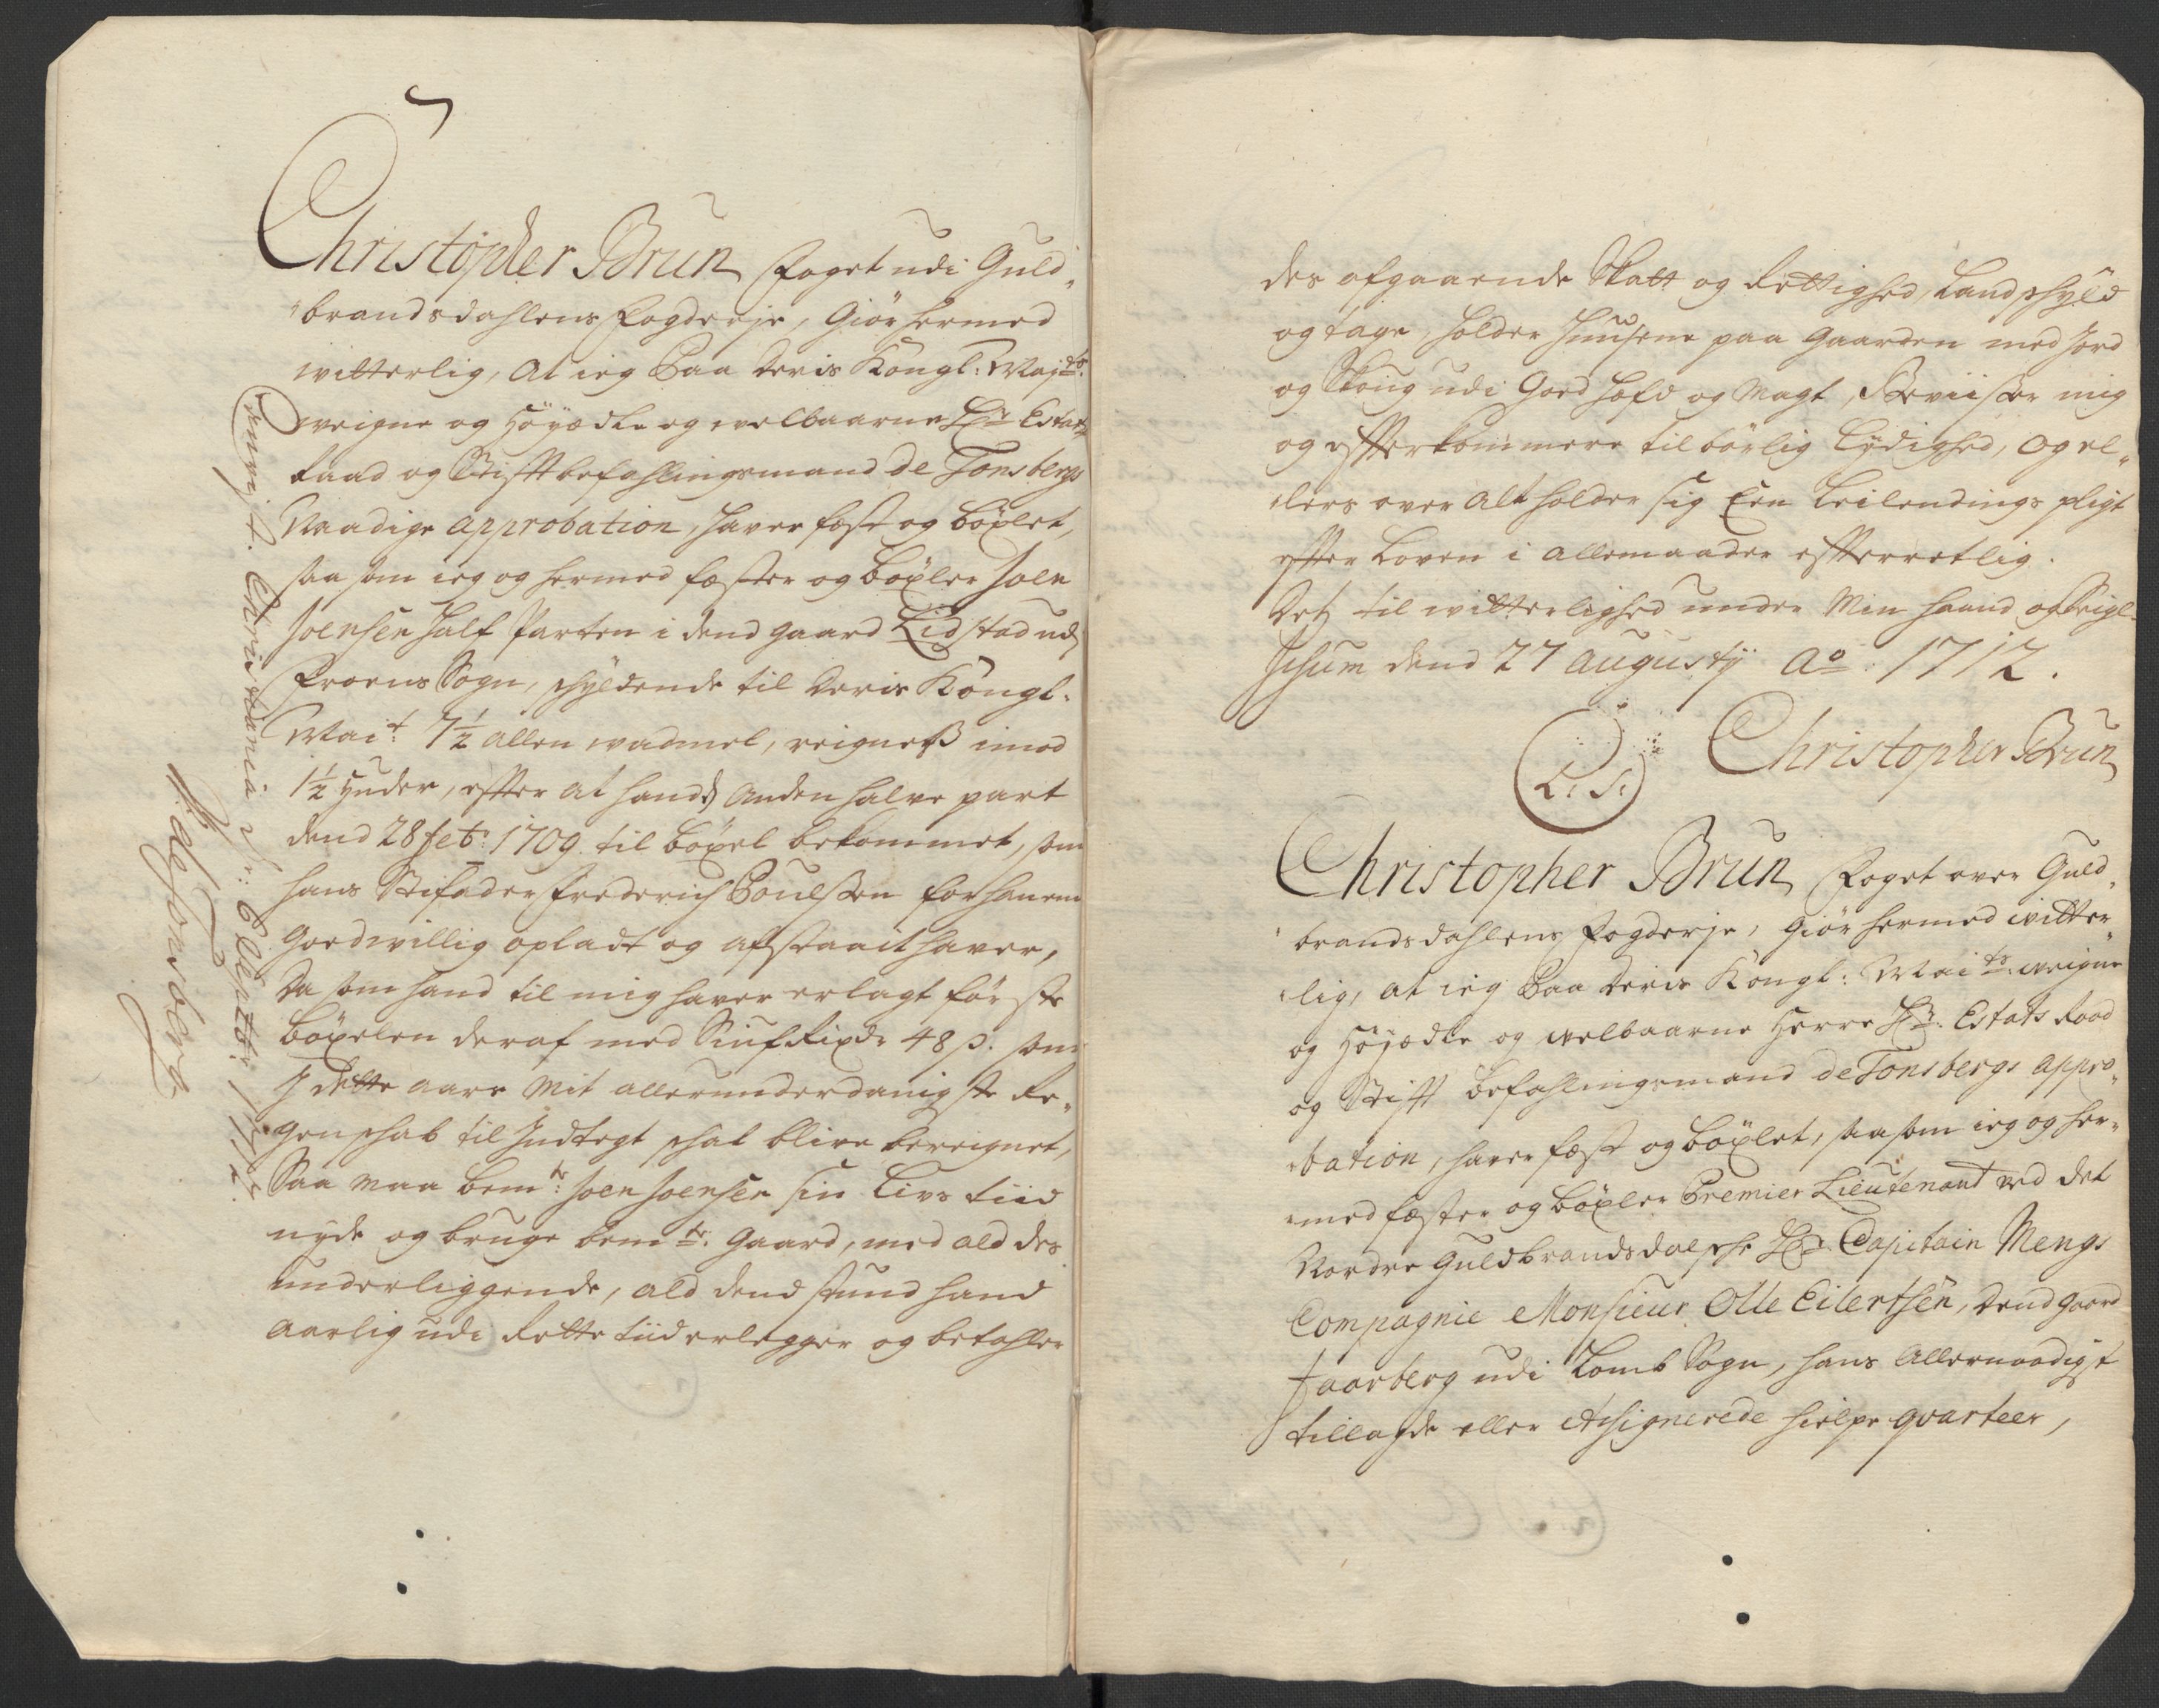 Christopher Brun Foget udi Guld-
brandsdahlens Fogderje, Giør hermed
witterlig, At ieg Paa Deris Kongl: Maj:ts
weigne og Høyædle og welbaarne Hr: Estats
Raad og Stiftbefahlingsmand de Tonsbergs
Naadige Approbation, haver fæst og böxlet,
saa som ieg og hermed fæster og böxler Joen
Joensen Half Parten i dend gaard Lidstad udj
Froens Sogn, schyldende til Deris Kongl.
Mait: 7½ allen wadmel, reigneß imod
1½ Huder, effter at hand d Anden halve part
dend 28 feb: 1709 til böxel bekommet, som
hans Stifader Frederich Poulsen for hanem
Goedwillig opladt og afstaait haver,
Da som hand til mig haver erlagt første
böxelen deraf med Siuf Rixdr 48 s. som
I dette aars Mit allerunderdanigste Re-
genschab til Indtegt schal blive bereignet,
Saa maa bemte: Joen Joensen sin Livs tiid
nyde og bruge bemte: Gaard, med ald des
underliggende, ald dend stund hand
Aarlig udi Rette tiid erlegger og betahler
Confirmerit. Christiania d: 6 Septbr: 1712.
W. de Tonsberg
des afgaaende Skatt og Rettighed, Landschyld
og tage, holder Huusene paa Gaarden med Jord
og Skoug udi Goed hæfd og Magt, Beviiser mig
og effterkommere tilbørlig Lydighed, og el-
lers over Alt holder sig Een Leilendings pligt
effter Loven i Allemaader effterretlig.
Dets til witterlighed under Min haand og Seigl.
Ihum dend 27 Augustij Ao: 1712.
L. S.
Christopher Brun
Christopher Brun Foget over Guld-
brandsdahlens Fogderje, Giør hermed witter-
lig, At ieg Paa Deris Kongl: Maits: weigne
og Høyædle og welbaarne Herre Hr: Estats Raad
og Stifft befahlingsmand de Tonsbergs Appro-
bation, haver fæst og böxlet, saasom ieg og her-
med fæster og böxler Premier Lieutenant ved det
Nordre Guldbrandsdalsche Hr: Capitain Mengs
Compagnie Monsieur Olle Eilertsen, Dend gaard
Faarberg udi Lomb Sogn, hans Allernaadigst
tillagde eller Assignerede Hielpe qvarteer,